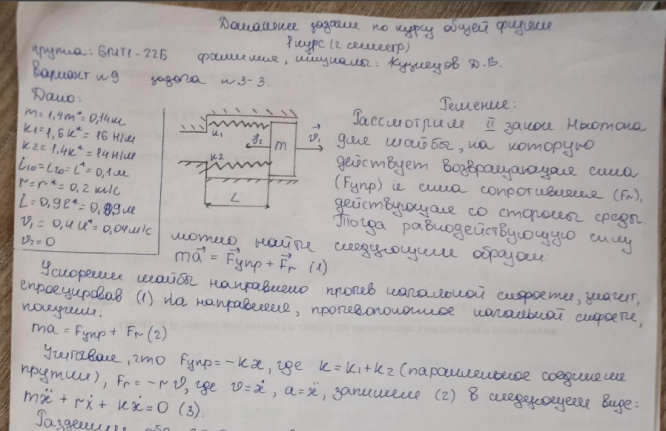 Домашнее задание по курсу общей физики
1 курс (2 семестр)
группа: БМТ1-22Б фамилия, инициалы: Кузнецов Д.В.
Вариант №9 задача №3-3.
Дано:
m=1,4m*=0,14кг
k1=1,6k*=16 Н/м
k2=1,4k*=14Н/м
l10=l20=l*=0,1м
r=r*=0,2 кг/с
L=0,9l*=0,09м
v1=0,4u*=0,04м/с
v2=0
k1
k2
v2
m
v1
L
Решение:
Рассмотрим II закон Ньютона
для шайбы, на которую
действует возвращающая сила
(Fупр) и сила сопротивления (Fr),
действующая со стороны среды.
Тогда равнодействующую силу
можно найти следующим образом:
ma = Fупр + Fr (1)
Ускорение шайбы направлено против начальной скорости, значит,
спроецировав (1) на направление, противоположное начальной скорости,
получим:
ma = Fупр + Fr (2)
Учитывая, что Fупр=-kx, где k=k1+k2 (параллельное соединение
пружин), Fr=-rv, где v=ẋ, a=ẍ, запишем (2) в следующем виде:
mẍ + rẋ + kx = 0 (3).